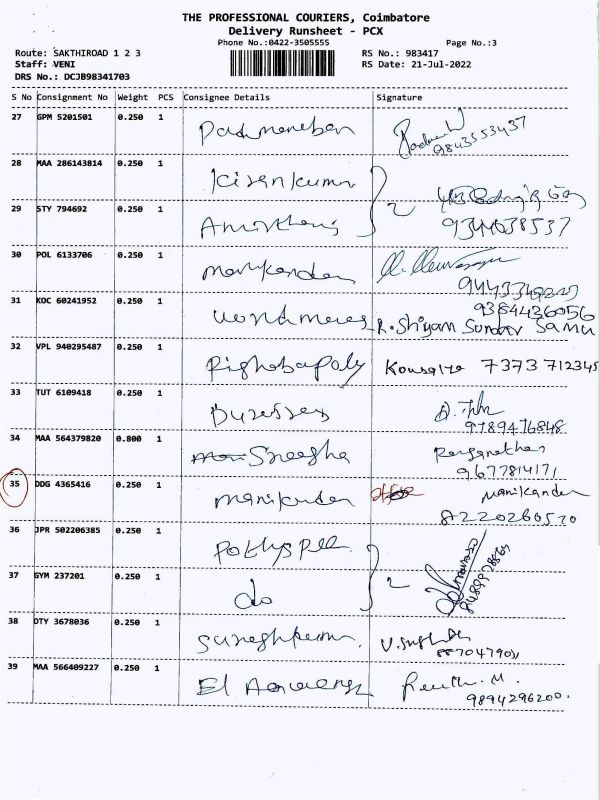 THE PROFESSIONAL COURIERS, Coimbatore
Delivery Runsheet - PCX
Phone No.:0422-3505555 Page No.:3
Route: SAKTHIROAD 1 2 3 RS No.: 983417
Staff: VENI RS Date: 21-Jul-2022
DRS No.: DCJB98341703
S No Consignment No Weight PCS Consignee Details Signature
27 GPM 5201501 0.250 1 Padmanaban
9843553437
28 MAA 286143814 0.250 1 Kisankumar
29 STY 794692 0.250 1 2
30 POL 6133706 0.250 1 Manikandan
31 KOC 60241952 0.250 1 9384436056
R. Shiyam Sundar Samu
32 VPL 940295487 0.250 1 Kousalya 7373 712345
33 TUT 6109418 0.250 1
9789476848
34 MAA 564379820 0.800 1 Sneegha Ranganathan
9677814171
35 DDG 4365416 0.250 1 Manikandan Manikandan
8220260570
36 JPR 502206385 0.250 1
37 GYM 237201 0.250 1 do 2
38 OTY 3678036 0.250 1 Sureshkumar
39 MAA 566409227 0.250 1 El
9894296200.